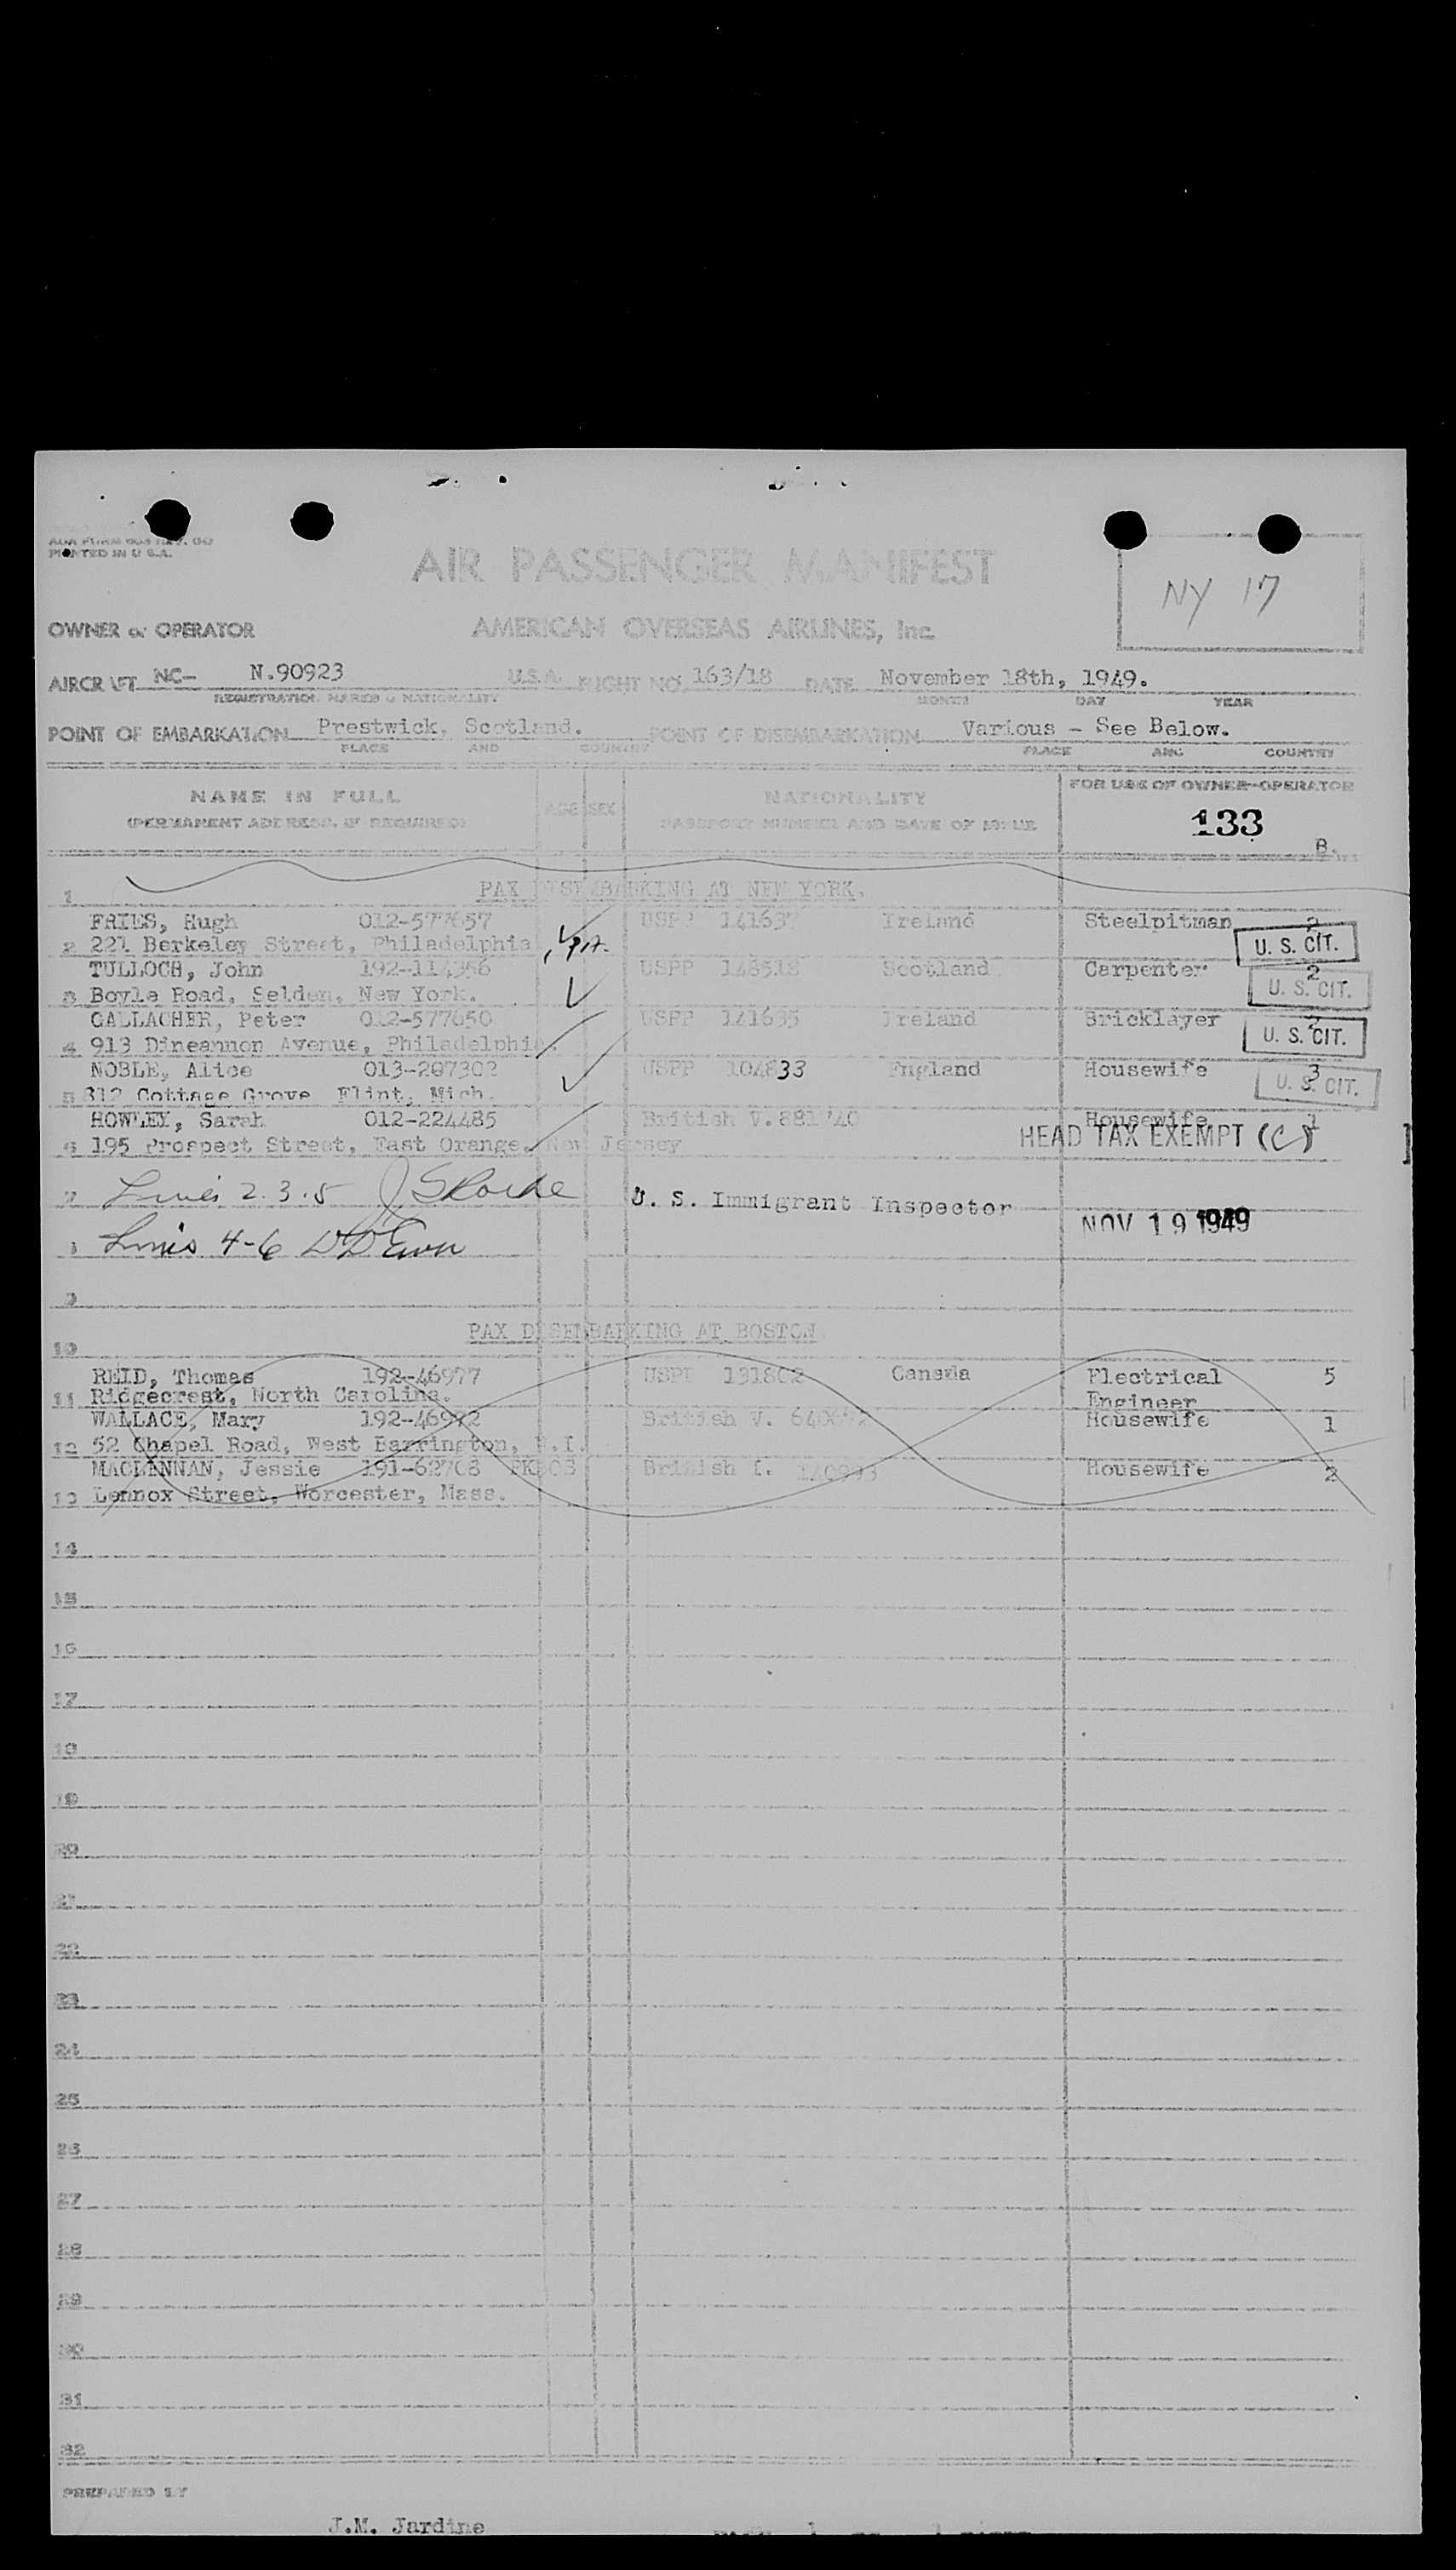 PRINTED IN U.S.A.
AIR PASSENGER MANIFEST
NY 17
OWNER or OPERATOR AMERICAN OVERSEAS AIRLINES, Inc.
AIRCRAFT NC- N.90923 U.S.A. FLIGHT NO. 163/18 DATE November 18th, 1949.
REGISTRATION MARKS & NATIONALITY MONTH DAY YEAR
POINT OF EMBARKATION Prestwick, Scotland. POINT OF DISEMBARKATION Various - See Below.
PLACE AND COUNTRY PLACE AND COUNTRY
NAME IN FULL AGE SEX NATIONALITY FOR USE OF OWNER-OPERATOR
(PERMANENT ADDRESS, IF REQUIRED) PASSPORT NUMBER AND DATE OF ISSUE 133
B.
1 PAX DISEMBARKING AT NEW YORK.
FRIES, Hugh 012-577657 USPP 141637 Ireland Steelpitman 2
2 221 Berkeley Street, Philadelphia U. S. CIT.
TULLOCH, John 192-114356 USPP 148518 Scotland Carpenter 2
3 Boyle Road, Selden, New York. U. S. CIT.
GALLAGHER, Peter 012-577650 USPP 141635 Ireland Bricklayer 2
4 913 Dineannon Avenue, Philadelphia. U. S. CIT.
NOBLE, Alice 013-207302 USPP 104833 England Housewife 3
5 812 Cottage Grove Flint, Mich. U. S. CIT.
HOWLEY, Sarah 012-224485 British V. 881740 Housewife 1
6 195 Prospect Street, East Orange, New Jersey HEAD TAX EXEMPT (C)
7 Lines 2.3.5 J S Roche U. S. Immigrant Inspector NOV 19 1949
8 Lines 4-6
9
10 PAX DISEMBARKING AT BOSTON
REID, Thomas 192-46977 USPP 131802 Canada Electrical 5
11 Ridgecrest, North Carolina. Engineer
WALLACE, Mary 192-46972 British V. Housewife 1
12 52 Chapel Road, West Barrington, R.I.
MACLENNAN, Jessie 191-62708 British Housewife 2
13 Lennox Street, Worcester, Mass.
14
15
16
17
18
19
20
21
22
23
24
25
26
27
28
29
30
31
32
PREPARED BY
J.M. Jardine